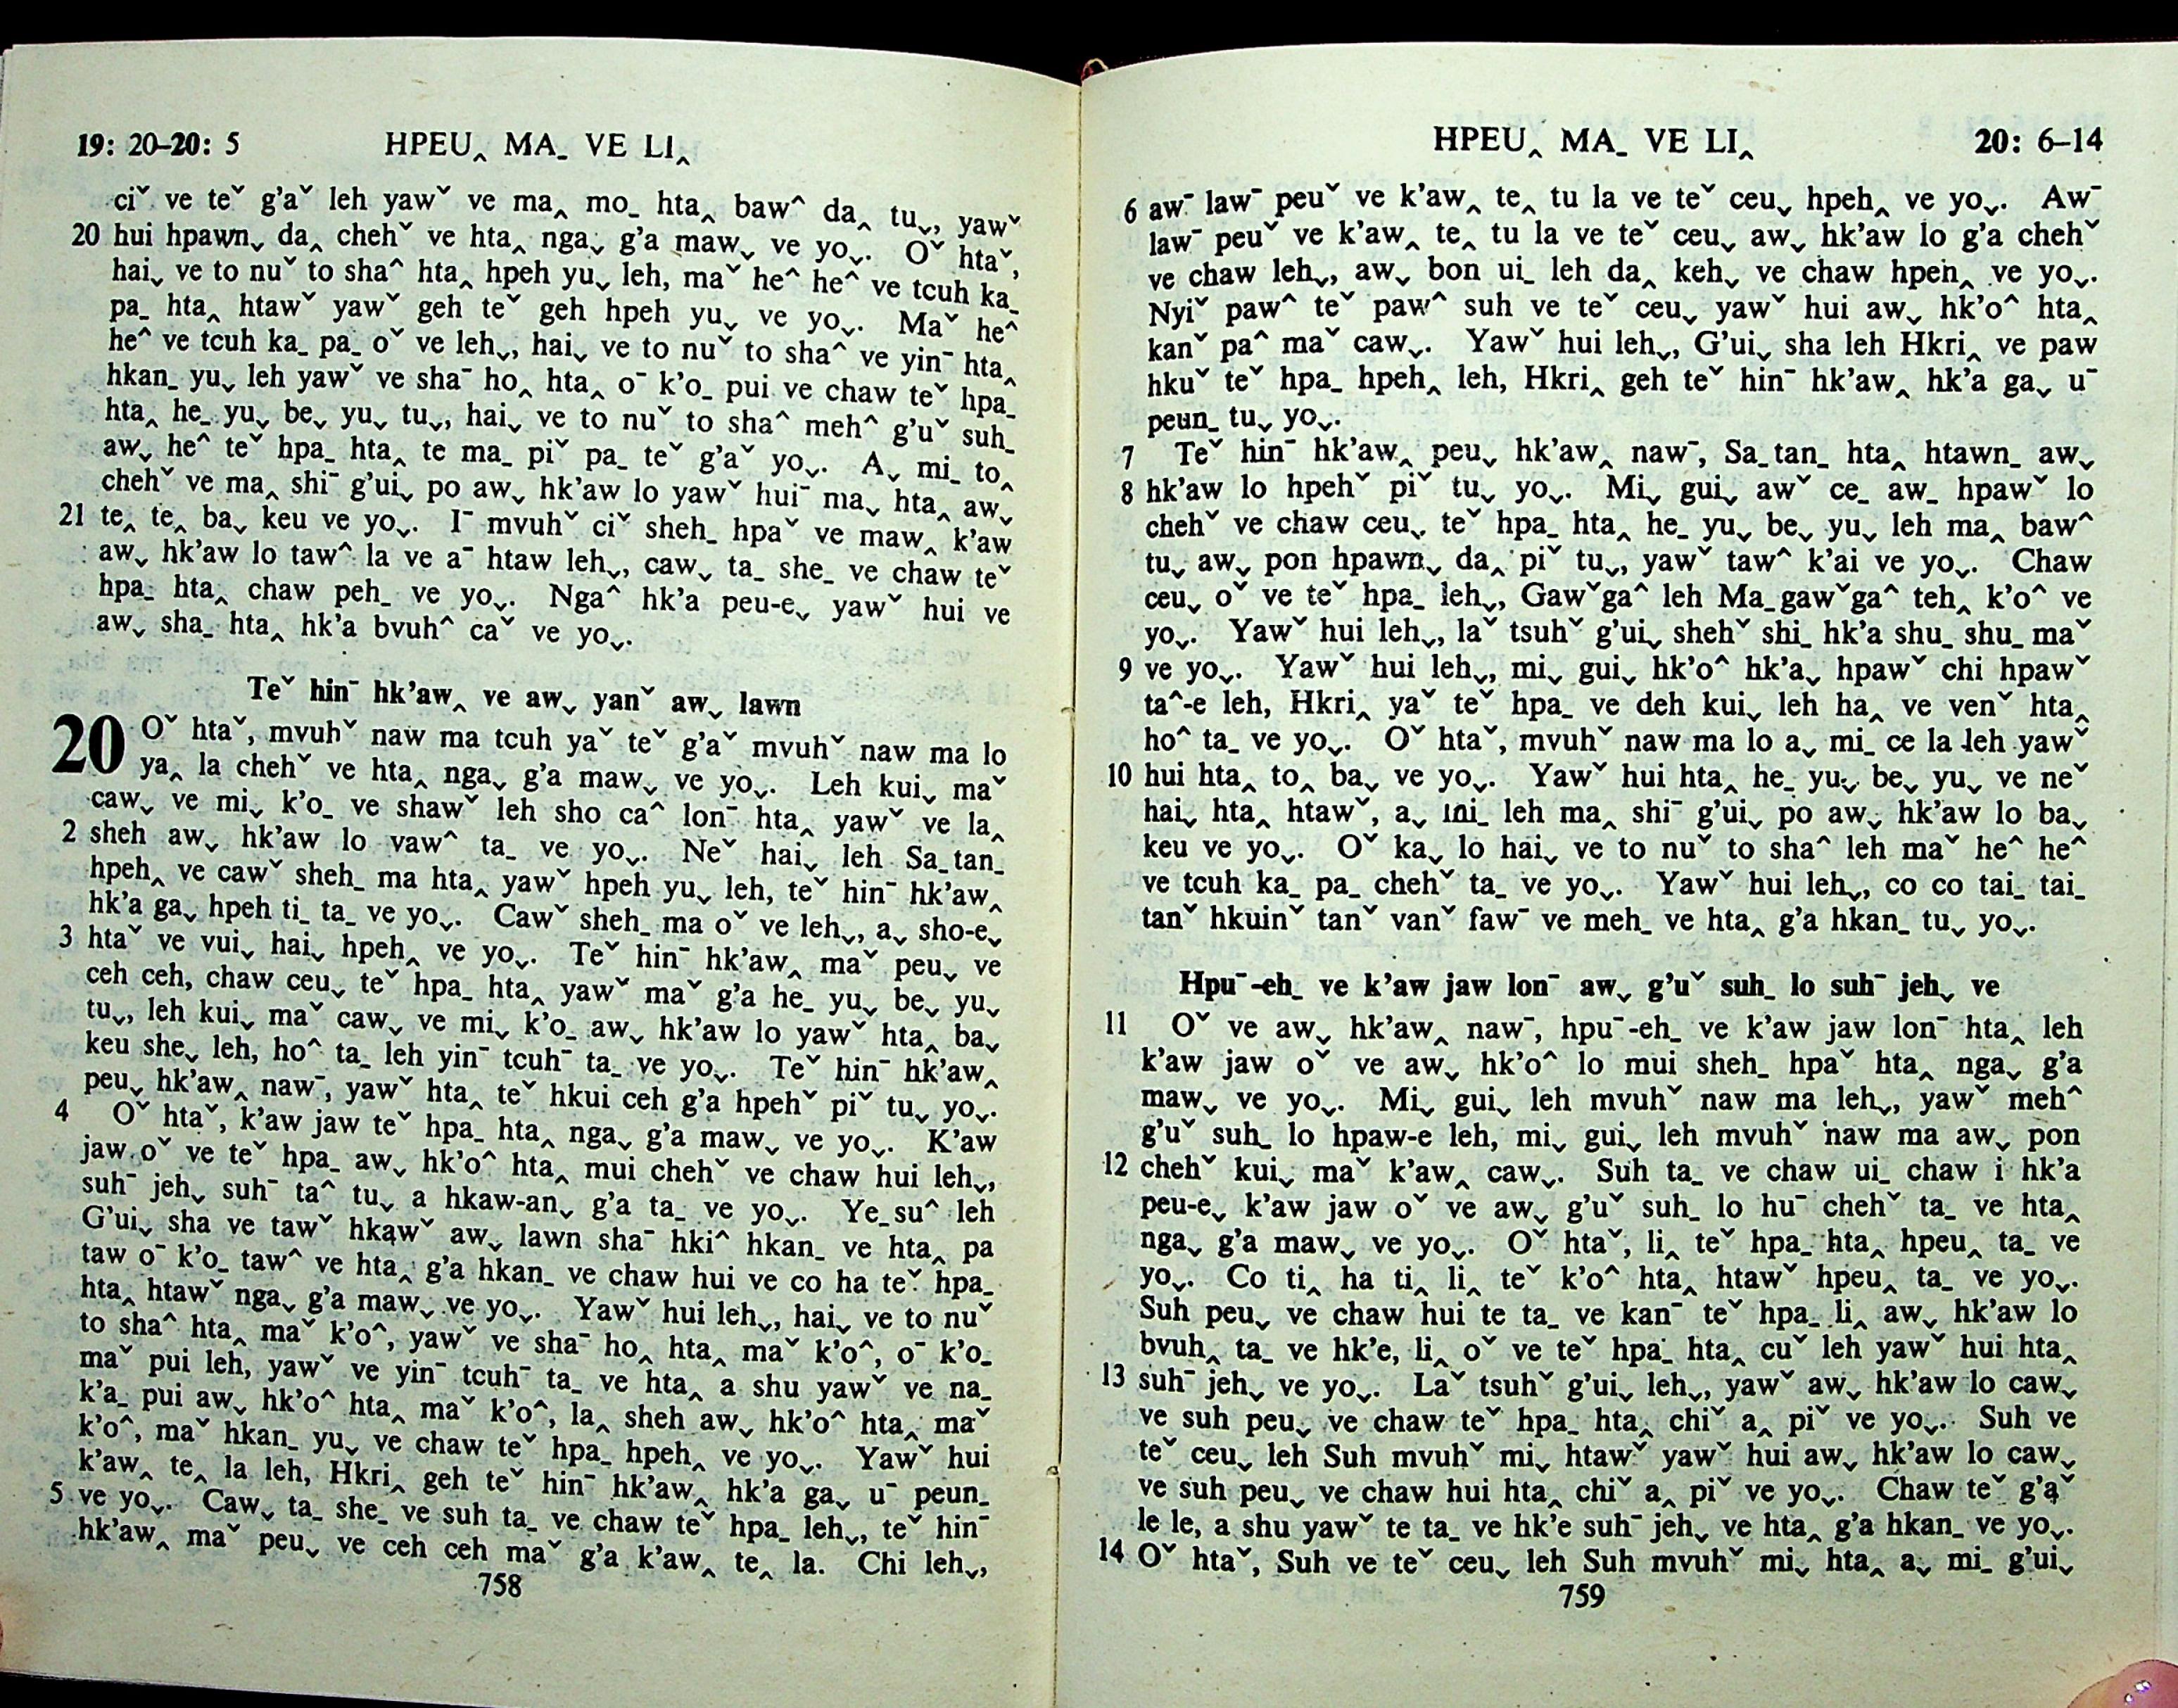 19: 20–20: 5 HPEU‸ MA_ VE LI‸
ciˇ ve teˇ g'aˇ leh yawˇ ve ma‸ mo_ hta‸ baw^ da‸ tuˬ, yawˇ
20 hui hpawnˬ da‸ chehˇ ve hta‸ ngaˬ g'a mawˬ ve yoˬ. Oˇ htaˇ,
haiˬ ve to nuˇ to sha^ hta‸ hpeh yuˬ leh, maˇ he^ he^ ve tcuh ka_
pa_ hta‸ htawˇ yawˇ geh teˇ geh hpeh yuˬ ve yoˬ. Maˇ he^
he^ ve tcuh ka_ pa_ oˇ ve lehˬ, haiˬ ve to nuˇ to sha^ ve yin¯ hta‸
hkan_ yuˬ leh yawˇ ve sha¯ ho‸ hta‸ o¯ k'o_ pui ve chaw teˇ hpa_
hta‸ he_ yuˬ beˬ yuˬ tuˬ, haiˬ ve to nuˇ to sha^ meh^ g'uˇ suh_
awˬ he^ teˇ hpa_ hta‸ te ma_ piˇ pa_ teˇ g'aˇ yoˬ. Aˬ mi_ to‸
chehˇ ve ma‸ shi¯ g'uiˬ po awˬ hk'aw lo yawˇ hui¯ maˬ hta‸ awˬ
te‸ te‸ baˬ keu ve yoˬ. I¯ mvuhˇ ciˇ sheh_ hpaˇ ve maw‸ k'aw
21 awˬ hk'aw lo taw^ la ve a¯ htaw lehˬ, cawˬ ta_ she_ ve chaw teˇ
hpa_ hta‸ chaw peh_ ve yoˬ. Nga^ hk'a peu-eˬ yawˇ hui ve
awˬ sha_ hta‸ hk'a bvuh^ caˇ ve yoˬ.
Teˇ hin¯ hk'aw‸ ve awˬ yanˇ awˬ lawn
20 Oˇ htaˇ, mvuhˇ naw ma tcuh yaˇ teˇ g'aˇ mvuhˇ naw ma lo
ya‸ la chehˇ ve hta‸ ngaˬ g'a mawˬ ve yoˬ. Leh kuiˬ maˇ
cawˬ ve miˬ k'o_ ve shawˇ leh sho ca^ lon¯ hta‸ yawˇ ve la‸
2 sheh awˬ hk'aw lo vaw^ ta_ ve yoˬ. Neˇ haiˬ leh Sa_tan_
hpeh‸ ve cawˇ sheh_ ma hta‸ yawˇ hpeh yuˬ leh, teˇ hin¯ hk'aw‸
hk'a gaˬ hpeh ti_ ta_ ve yoˬ. Cawˇ sheh_ ma oˇ ve lehˬ, aˬ sho-eˬ
3 htaˇ ve vuiˬ haiˬ hpeh‸ ve yoˬ. Teˇ hin¯ hk'aw‸ maˇ peuˬ ve
ceh ceh, chaw ceuˬ teˇ hpa_ hta‸ yawˇ maˇ g'a he_ yuˬ beˬ yuˬ
tuˬ, leh kuiˬ maˇ cawˬ ve miˬ k'o_ awˬ hk'aw lo yawˇ hta‸ baˬ
keu sheˬ leh, ho^ ta_ leh yin¯ tcuh¯ ta_ ve yoˬ. Teˇ hin¯ hk'aw‸
peuˬ hk'aw‸ naw¯, yawˇ hta‸ teˇ hkui ceh g'a hpehˇ piˇ tuˬ yoˬ.
4 Oˇ htaˇ, k'aw jaw teˇ hpa_ hta‸ ngaˬ g'a mawˬ ve yoˬ. K'aw
jaw oˇ ve teˇ hpa_ awˬ hk'o^ hta‸ mui chehˇ ve chaw hui lehˬ,
suh¯ jehˬ suh¯ ta^ tuˬ a hkaw-anˬ g'a ta_ ve yoˬ. Ye_su^ leh
G'uiˬ sha ve tawˇ hkawˇ awˬ lawn sha¯ hki^ hkan_ ve hta‸ pa
taw o¯ k'o_ taw^ ve hta‸ g'a hkan_ ve chaw hui ve co ha teˇ hpa_
hta‸ htawˇ ngaˬ g'a mawˬ ve yoˬ. Yawˇ hui lehˬ, haiˬ ve to nuˇ
to sha^ hta‸ maˇ k'o^, yawˇ ve sha¯ ho‸ hta‸ maˇ k'o^, o¯ k'o_
maˇ pui leh, yawˇ ve yin¯ tcuh¯ ta_ ve hta‸ a shu yawˇ ve na_
k'a_ pui awˬ hk'o^ hta‸ maˇ k'o^, la‸ sheh awˬ hk'o^ hta‸ maˇ
k'o^, maˇ hkan_ yuˬ ve chaw teˇ hpa_ hpeh‸ ve yoˬ. Yawˇ hui
k'aw‸ te‸ la leh, Hkri‸ geh teˇ hin¯ hk'aw‸ hk'a gaˬ u¯ peun_
5 ve yoˬ. Cawˬ ta_ she_ ve suh ta_ ve chaw teˇ hpa_ lehˬ, teˇ hin¯
hk'aw‸ maˇ peuˬ ve ceh ceh maˇ g'a k'aw‸ te‸ la. Chi lehˬ,
758
HPEU‸ MA_ VE LI‸ 20: 6–14
6 aw¯ law¯ peuˇ ve k'aw‸ te‸ tu la ve teˇ ceuˬ hpeh‸ ve yoˬ. Aw¯
law¯ peuˇ ve k'aw‸ te‸ tu la ve teˇ ceuˬ awˬ hk'aw lo g'a chehˇ
ve chaw lehˬ, awˬ bon ui_ leh da‸ keh‸ ve chaw hpeh‸ ve yoˬ.
Nyiˇ paw^ teˇ paw^ suh ve teˇ ceuˬ yawˇ hui awˬ hk'o^ hta‸
kanˇ pa^ maˇ cawˬ. Yawˇ hui lehˬ, G'uiˬ sha leh Hkri‸ ve paw
hkuˇ teˇ hpa_ hpeh‸ leh, Hkri‸ geh teˇ hin¯ hk'aw‸ hk'a gaˬ u¯
peun_ tuˬ yoˬ.
7 Teˇ hin¯ hk'aw‸ peuˬ hk'aw‸ naw¯, Sa_tan_ hta‸ htawn_ awˬ
8 hk'aw lo hpehˇ piˇ tuˬ yoˬ. Miˬ guiˬ awˇ ce_ aw_ hpawˇ lo
chehˇ ve chaw ceuˬ teˇ hpa_ hta‸ he_ yuˬ beˬ yuˬ leh ma‸ baw^
tuˬ awˬ pon hpawnˬ da‸ piˇ tuˬ, yawˇ taw^ k'ai ve yoˬ. Chaw
ceuˬ oˇ ve teˇ hpa_ lehˬ, Gawˇga^ leh Ma_gawˇga^ teh‸ k'o^ ve
yoˬ. Yawˇ hui lehˬ, laˇ tsuhˇ g'uiˬ shehˇ shi_ hk'a shu_ shu_ maˇ
9 ve yoˬ. Yawˇ hui lehˬ, miˬ guiˬ hk'o^ hk'aˬ hpawˇ chi hpawˇ
ta^-e leh, Hkri‸ yaˇ teˇ hpa_ ve deh kuiˬ leh ha‸ ve venˇ hta‸
ho^ ta_ ve yoˬ. Oˇ htaˇ, mvuhˇ naw ma lo aˬ mi_ ce la leh yawˇ
10 hui hta‸ to‸ baˬ ve yoˬ. Yawˇ hui hta‸ he_ yuˬ beˬ yuˬ ve neˇ
haiˬ hta‸ htawˇ, aˬ mi_ leh ma‸ shi¯ g'uiˬ po awˬ hk'aw lo baˬ
keu ve yoˬ. Oˇ kaˬ lo haiˬ ve to nuˇ to sha^ leh maˇ he^ he^
ve tcuh ka_ pa_ chehˇ ta_ ve yoˬ. Yawˇ hui lehˬ, co co tai_ tai_
tanˇ hkuinˇ tanˇ vanˇ faw¯ ve meh_ ve hta‸ g'a hkan_ tuˬ yoˬ.
Hpu¯-eh_ ve k'aw jaw lon¯ awˬ g'uˇ suh_ lo suh¯ jehˬ ve
11 Oˇ ve awˬ hk'aw‸ naw¯, hpu¯-eh_ ve k'aw jaw lon¯ hta‸ leh
k'aw jaw oˇ ve awˬ hk'o^ lo mui sheh_ hpaˇ hta‸ ngaˬ g'a
mawˬ ve yoˬ. Miˬ guiˬ leh mvuhˇ naw ma lehˬ, yawˇ meh^
g'uˇ suh_ lo hpaw-e leh, miˬ guiˬ leh mvuhˇ naw ma awˬ pon
12 chehˇ kuiˬ maˇ k'aw‸ cawˬ. Suh ta_ ve chaw ui_ chaw i hk'a
peu-eˬ k'aw jaw oˇ ve awˬ g'uˇ suh_ lo hu¯ chehˇ ta_ ve hta‸
ngaˬ g'a mawˬ ve yoˬ. Oˇ htaˇ, li‸ teˇ hpa_ hta‸ hpeu‸ ta_ ve
yoˬ. Co ti‸ ha ti‸ li‸ teˇ k'o^ hta‸ htawˇ hpeu‸ ta_ ve yoˬ.
Suh peuˬ ve chaw hui te ta_ ve kan¯ teˇ hpa_ li‸ awˬ hk'aw lo
bvuh‸ ta_ ve hk'e, li‸ oˇ ve teˇ hpa_ hta‸ cuˇ leh yawˇ hui hta‸
13 suh¯ jehˬ ve yoˬ. Laˇ tsuhˇ g'uiˬ lehˬ, yawˇ awˬ hk'aw lo cawˬ
ve suh peuˬ ve chaw teˇ hpa_ hta‸ chiˇ a‸ piˇ ve yoˬ. Suh ve
teˇ ceuˬ leh Suh mvuhˇ miˬ htawˇ yawˇ hui awˬ hk'aw lo cawˬ
ve suh peuˬ ve chaw hui hta‸ chiˇ a‸ piˇ ve yoˬ. Chaw teˇ g'aˇ
le le, a shu yawˇ te ta_ ve hk'e suh¯ jehˬ ve hta‸ g'a hkan_ ve yoˬ.
14 Oˇ htaˇ, Suh ve teˇ ceuˬ leh Suh mvuhˇ miˬ hta‸ aˬ mi_ g'uiˬ
759